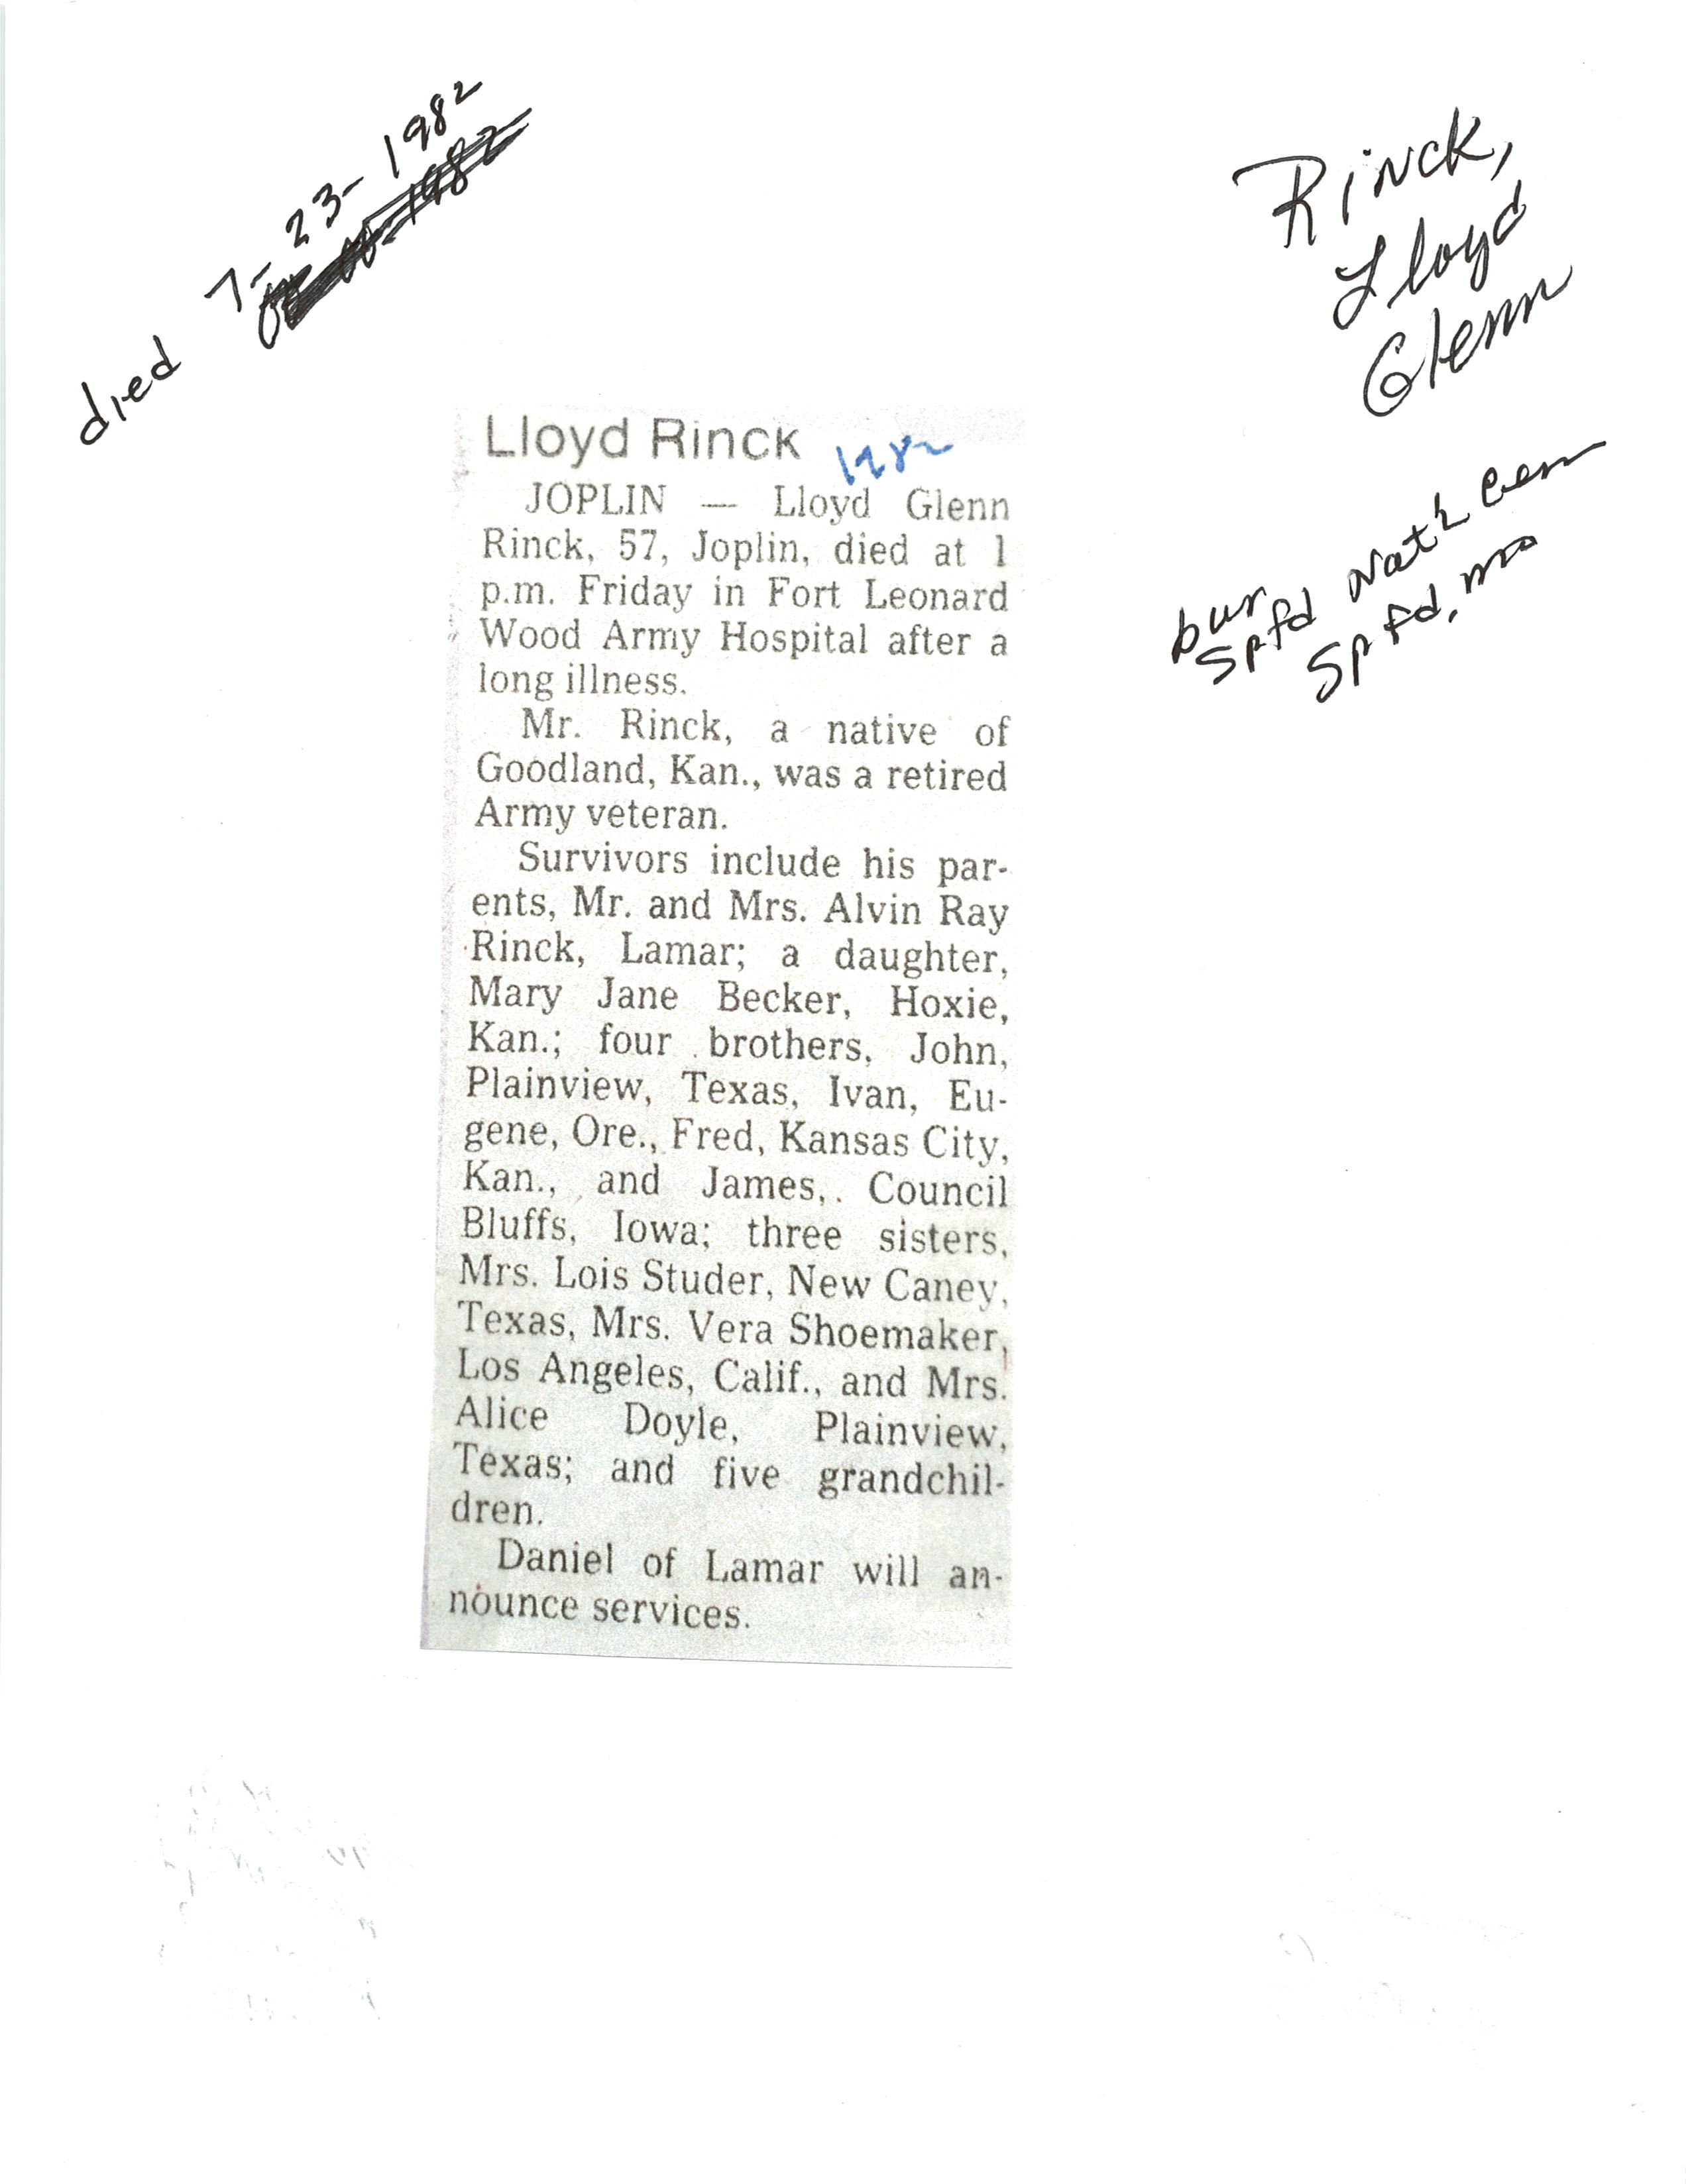 died 7-23-1982
Rinck,
Lloyd
Glenn
bur
Spfd Nat'l Cem
Spfd, Mo
Lloyd Rinck 1982
JOPLIN — Lloyd Glenn
Rinck, 57, Joplin, died at 1
p.m. Friday in Fort Leonard
Wood Army Hospital after a
long illness.
Mr. Rinck, a native of
Goodland, Kan., was a retired
Army veteran.
Survivors include his par-
ents, Mr. and Mrs. Alvin Ray
Rinck, Lamar; a daughter,
Mary Jane Becker, Hoxie,
Kan.; four brothers, John,
Plainview, Texas, Ivan, Eu-
gene, Ore., Fred, Kansas City,
Kan., and James, Council
Bluffs, Iowa; three sisters,
Mrs. Lois Studer, New Caney,
Texas, Mrs. Vera Shoemaker,
Los Angeles, Calif., and Mrs.
Alice Doyle, Plainview,
Texas; and five grandchil-
dren.
Daniel of Lamar will an-
nounce services.